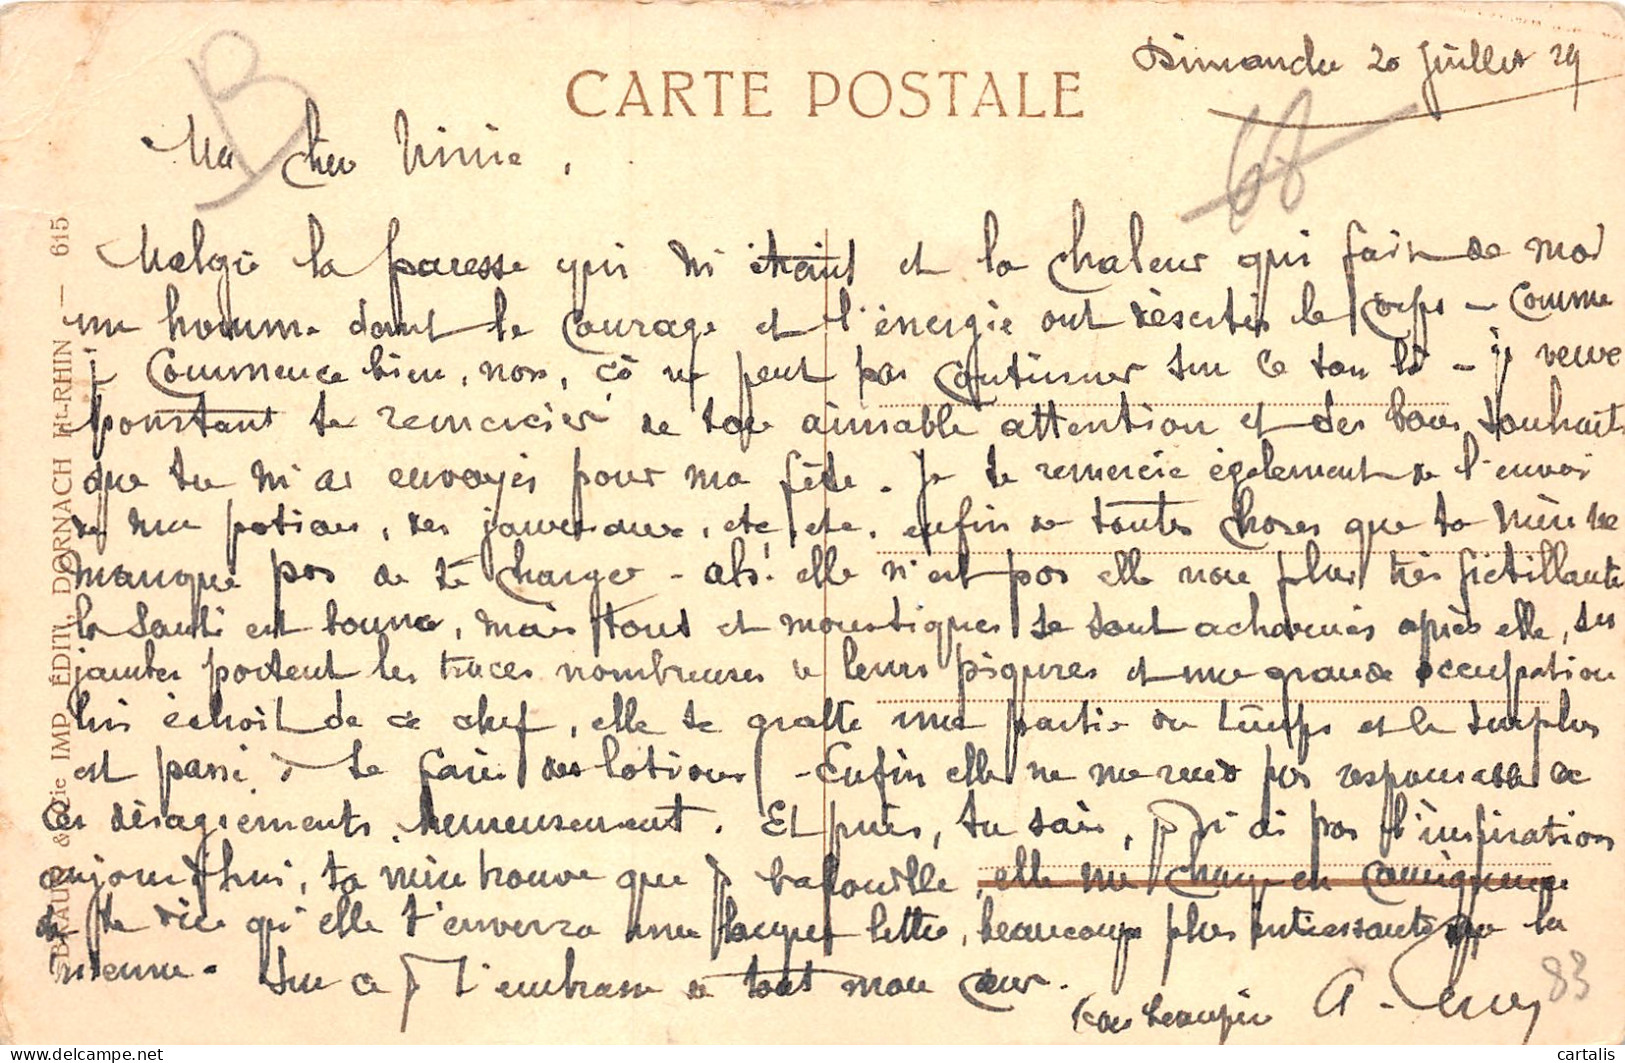 Dimanche 20 Juillet 29
CARTE POSTALE
Ma cher Ninie,
Malgré la paresse qui m'étaint et la chaleur qui fait de moi
un homme dont le courage et l'énergie ont désertés le corps - comme
je commence bien, non, ça ne peut pas continuer sur ce ton là - je veux
pourtant te remercier de ton aimable attention et des bons souhaits
que tu m'as envoyés pour ma fête. Je te remercie également de l'envoi
de ma potion, des journaux, etc, etc, enfin de toutes choses que ta mère ne
manque pas de te charger - ah! elle n'est pas elle non plus très frétillante
la santé est bonne, mais tous et moustiques se sont acharnés après elle, ses
jambes portent les traces nombreuses de leurs piqures et une grande occupation
lui échoit de ce chef, elle se gratte une partie du temps et le surplus
est passé à se faire des lotions - Enfin elle ne me rend pas responsable de
ces désagréments heureusement. Et puis, tu sais, je n'ai pas l'inspiration
aujourd'hui, ta mère trouve que je bafouille, elle me charge en conséquence
de te dire qu'elle t'enverra une longue lettre, beaucoup plus intéressante que la
mienne. Sur ce je t'embrasse de tout mon cœur.
Ton beau père
83
BRAUN & Cie IMP. ÉDITR. DORNACH Ht-RHIN — 615
cartalis